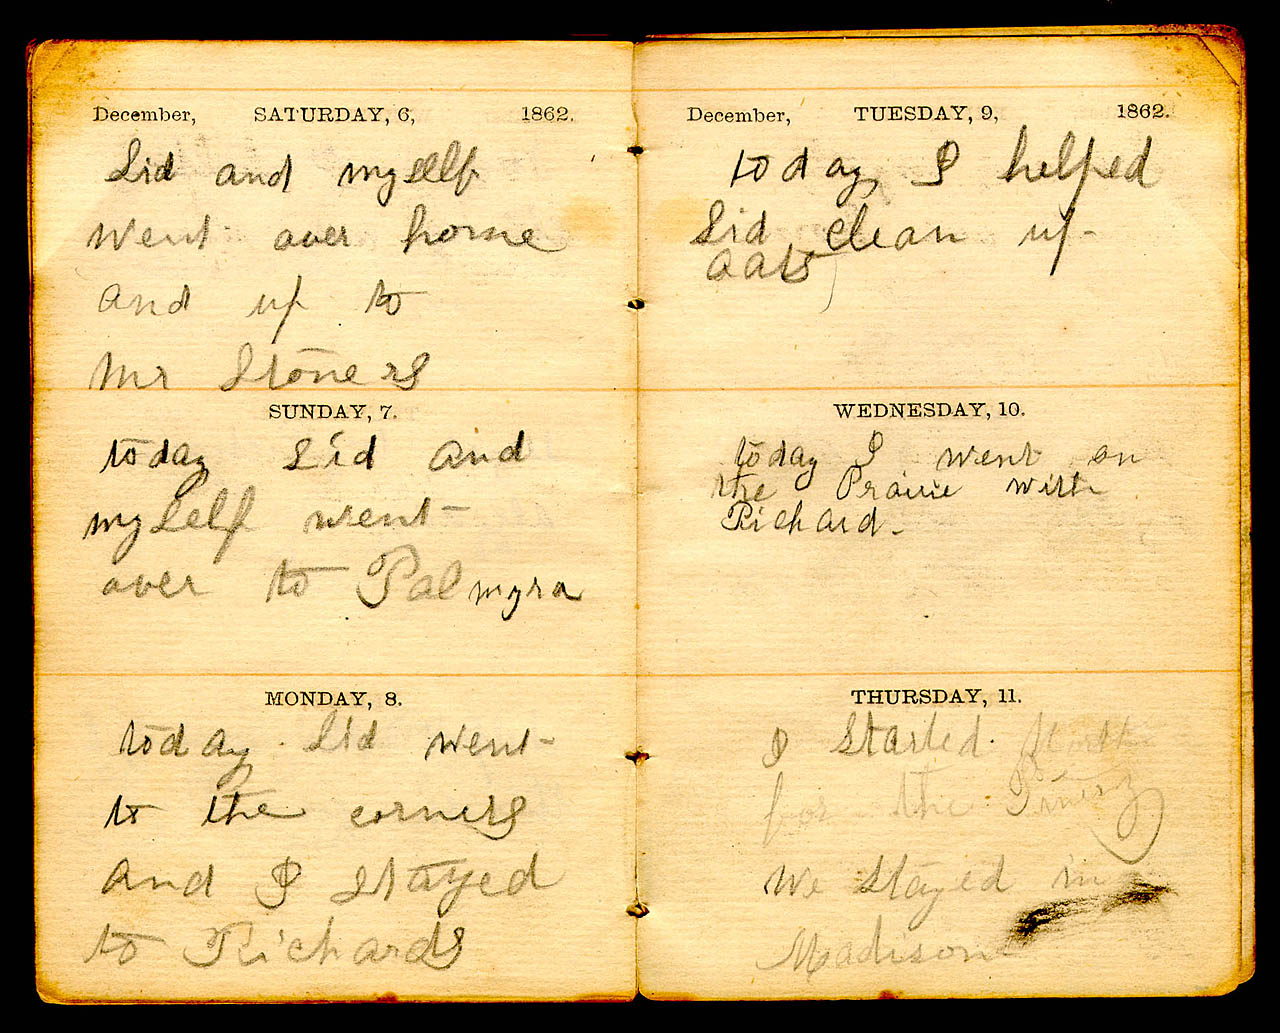 December, SATURDAY, 6, 1862.
Sid and myself
went over home
and up to
Mr Stoners
SUNDAY, 7.
today Sid and
myself went
over to Palmyra
MONDAY, 8.
today Sid went
to the corners
and I stayed
to Richards
December, TUESDAY, 9, 1862.
today I helped
Sid clean up
oats
WEDNESDAY, 10.
today I went on
the Prairie with
Richard.
THURSDAY, 11.
I started
for the Pinery
We stayed in
Madison